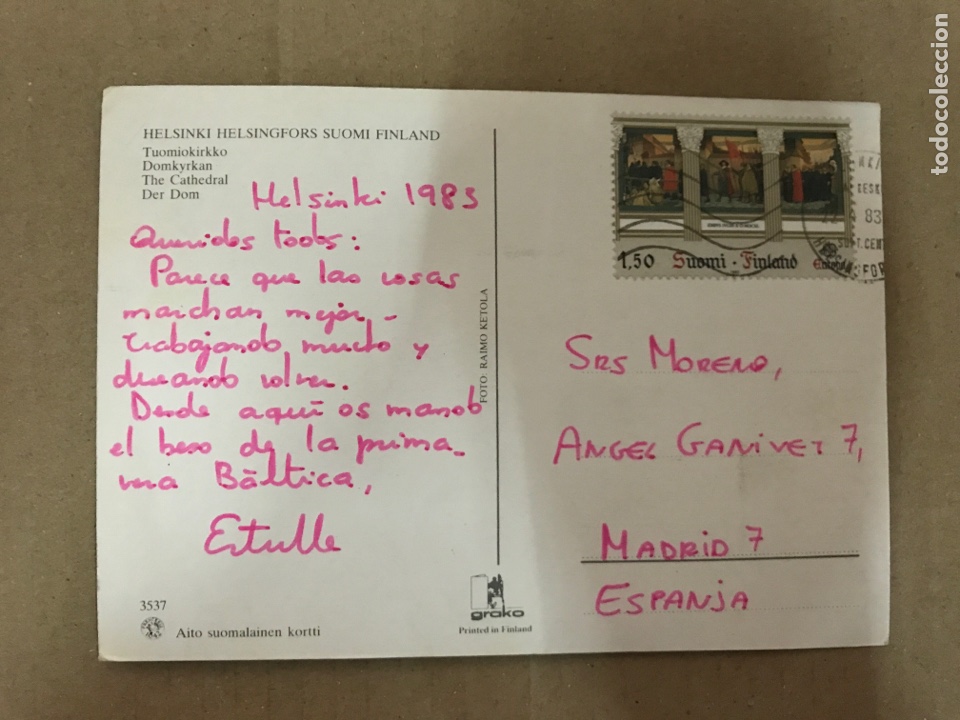 HELSINKI HELSINGFORS SUOMI FINLAND
Tuomiokirkko
Domkyrkan
The Cathedral
Der Dom
Helsinki 1983
Queridos todos:
Parece que las cosas
marchan mejor -
trabajando mucho y
deseando volver.
Desde aquí os mando
el beso de la prima-
vera Báltica,
Estulle
3537
Aito suomalainen kortti
FOTO: RAIMO KETOLA
grako
Printed in Finland
1,50 Suomi · Finland Europa
83
SRS MORENO,
ANGEL GANIVET 7,
MADRID 7
ESPANJA
todocoleccion